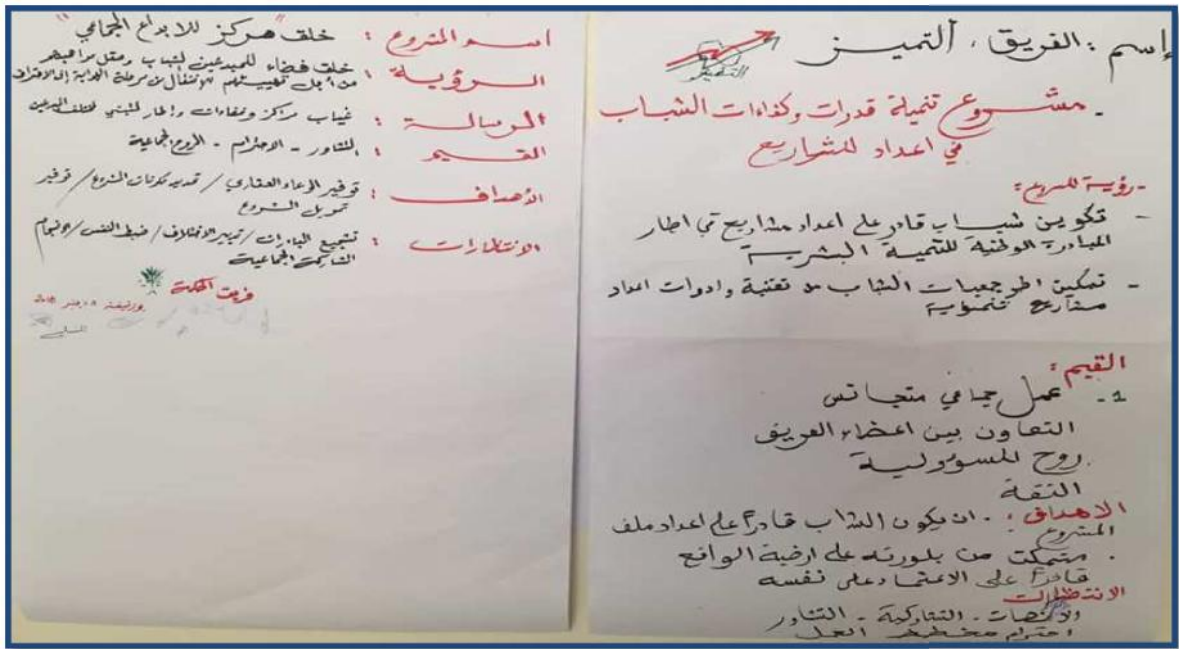 إسم الفريق: التميز
- مشروع تنمية قدرات وكفاءات الشباب
في اعداد المشاريع
- رؤية المشروع:
- تكوين شباب قادر على اعداد مشاريع في اطار
المبادرة الوطنية للتنمية البشرية
- تمكين اطر جمعيات الشباب من تقنية وادوات اعداد
مشاريع تنموية
القيم:
1- عمل جماعي متجانس
التعاون بين اعضاء الفريق
روح المسؤولية
الثقة
الاهداف: . ان يكون الشاب قادرا على اعداد ملف
المشروع
. متمكن من بلورته على ارضية الواقع
قادرا على الاعتماد على نفسه
الانتظارات
الانصات - التشاركية - التشاور
احترام مخطط العمل
اسم المشروع: خلق "مركز للابداع الجماعي"
الرؤية: خلق فضاء للمبدعين الشباب وصقل مواهبهم
من أجل للانتقال من مرحلة الهواية إلى الاحتراف
الرسالة: غياب مراكز وفضاءات وإطار لتبني مختلف المبدعين
القيم: التشاور - الاحترام - الروح الجماعية
الأهداف: توفير الوعاء العقاري / تحديد مكونات المشروع / توفير
تمويل المشروع
الانتظارات: تشجيع المبادرات / تدبير الاختلاف / ضبط النفس / الانسجام
المشاركة الجماعية
فريق الحكمة